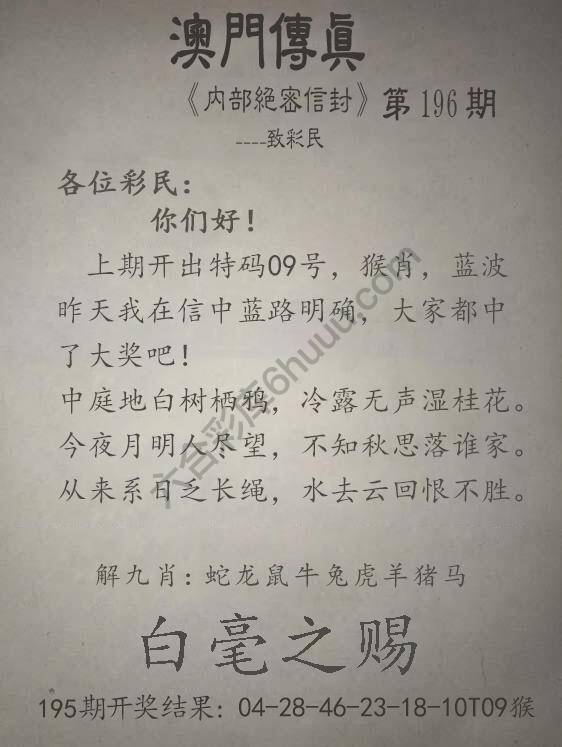 澳門傳眞
《内部絕密信封》第196期
----致彩民
各位彩民：
你们好！
上期开出特码09号，猴肖，蓝波
昨天我在信中蓝路明确，大家都中
了大奖吧！
中庭地白树栖鸦，冷露无声湿桂花。
今夜月明人尽望，不知秋思落谁家。
从来系日乏长绳，水去云回恨不胜。
解九肖：蛇龙鼠牛兔虎羊猪马
白毫之赐
195期开奖结果：04-28-46-23-18-10T09猴
六合彩库6huuu.com